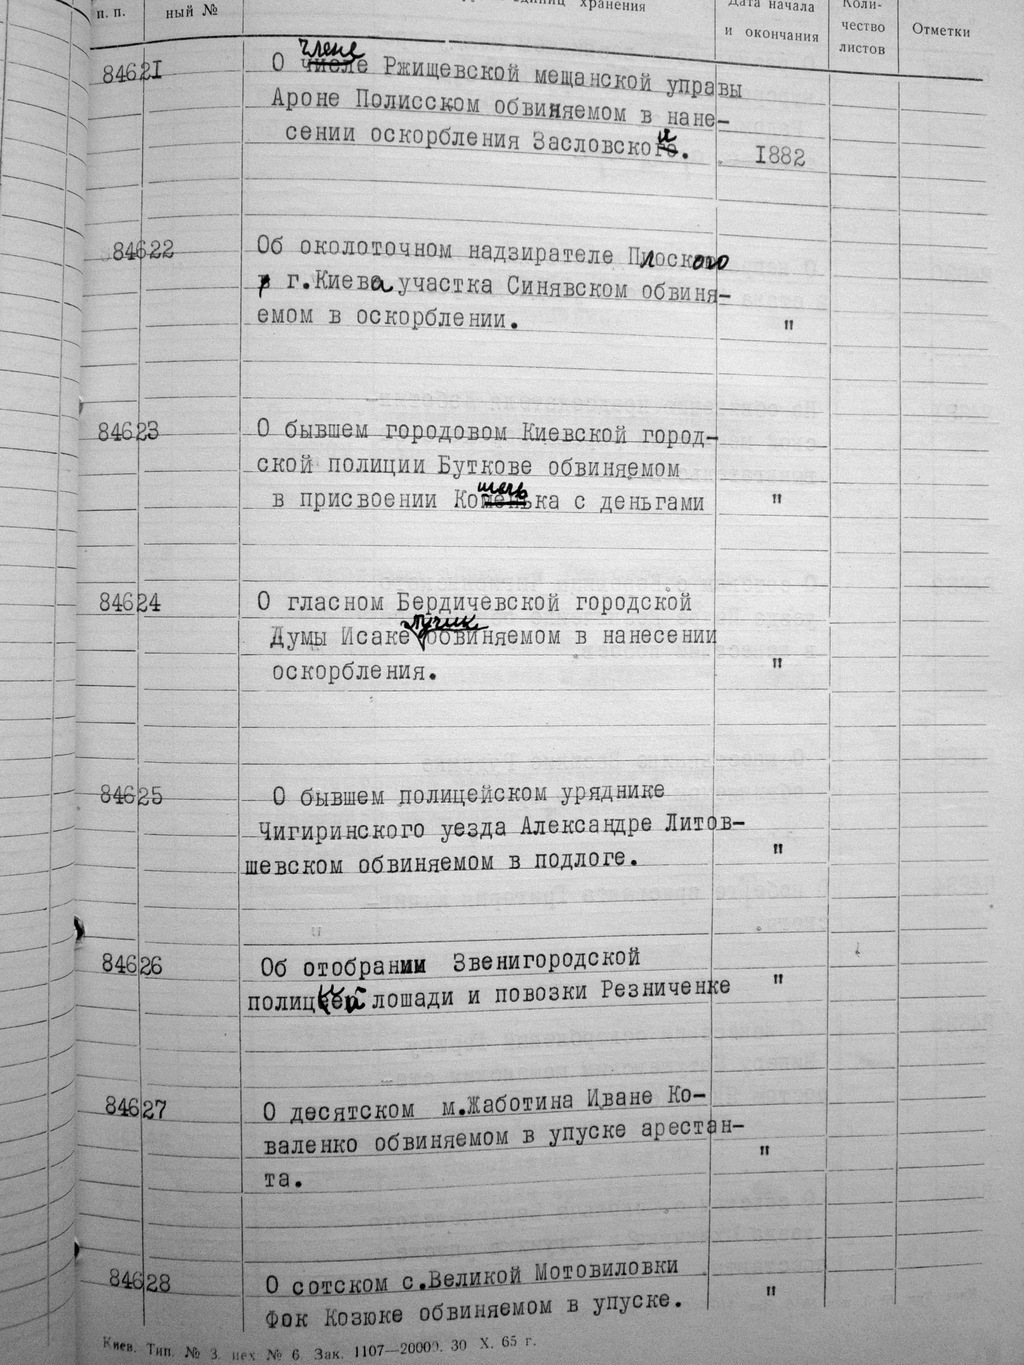 п. п. ный № единиц хранения Дата начала и окончания Коли-чество листов Отметки
84621 О члене Ржищевской мещанской управы
Ароне Полисском обвиняемом в нане-
сении оскорбления Засловской. 1882
84622 Об околоточном надзирателе Плоского
г.Киева участка Синявском обвиня-
емом в оскорблении. "
84623 О бывшем городовом Киевской город-
ской полиции Буткове обвиняемом
в присвоении Кошелька с деньгами "
84624 О гласном Бердичевской городской
Думы Исаке обвиняемом в нанесении
оскорбления. "
84625 О бывшем полицейском уряднике
Чигиринского уезда Александре Литов-
шевском обвиняемом в подлоге. "
84626 Об отобрании Звенигородской
полицией лошади и повозки Резниченке "
84627 О десятском м.Жаботина Иване Ко-
валенко обвиняемом в упуске арестан-
та. "
84628 О сотском с.Великой Мотовиловки
Фок Козюке обвиняемом в упуске. "
Киев. Тип. № 3. цех № 6. Зак. 1107—20000. 30 X. 65 г.